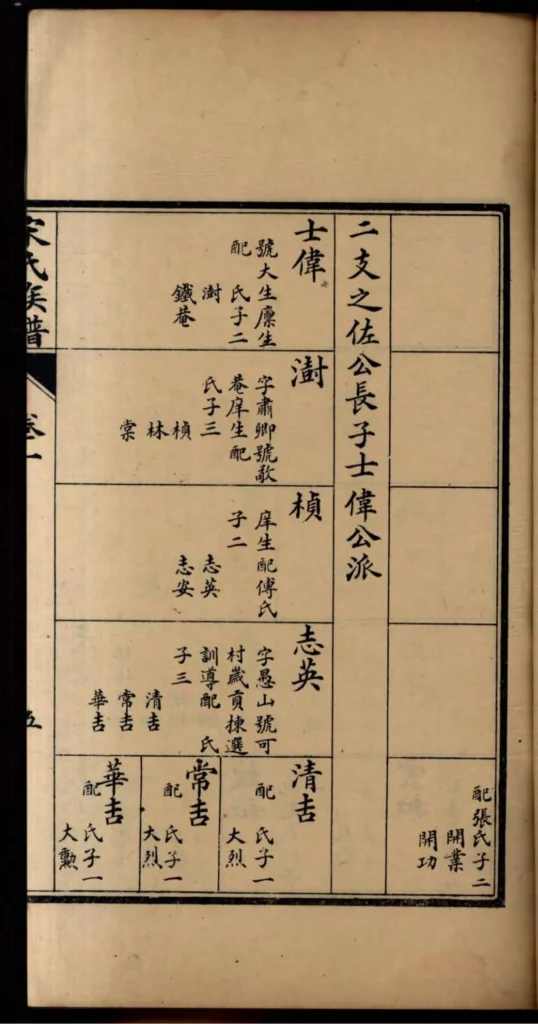 配張氏子二
開業
開功
二支之佐公長子士偉公派
士偉
號大生廩生
配　氏子二
澍
鐵菴
澍
字肅卿號敬
菴庠生配
氏子三
楨
林
棠
楨
庠生配傅氏
子二
志英
志安
志英
字愚山號可
村歲貢揀選
訓導配　氏
子三
清吉
常吉
華吉
清吉
配　氏子一
大烈
常吉
配　氏子一
大烈
華吉
配　氏子一
大勳
宋氏族譜
卷一
五